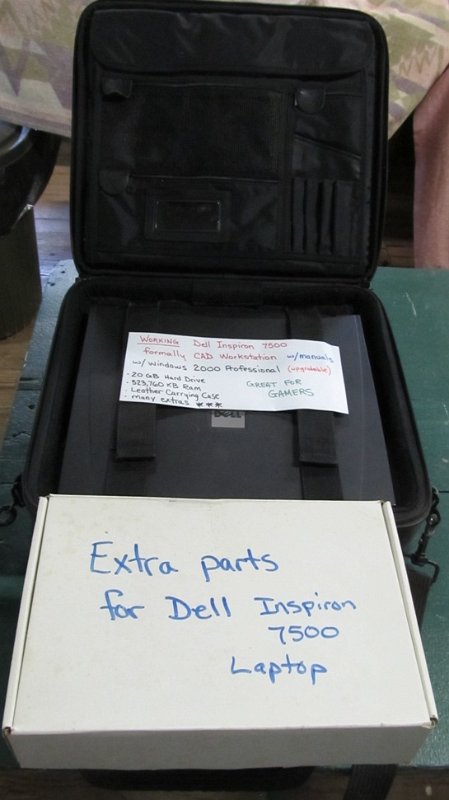 WORKING Dell Inspiron 7500
formally CAD Workstation w/manuals
w/ Windows 2000 Professional (upgradable)
· 20 GB Hard Drive
· 523,760 KB Ram
· Leather Carrying Case
· many extras ***
GREAT FOR
GAMERS
DELL
Extra parts
for Dell Inspiron
7500
Laptop